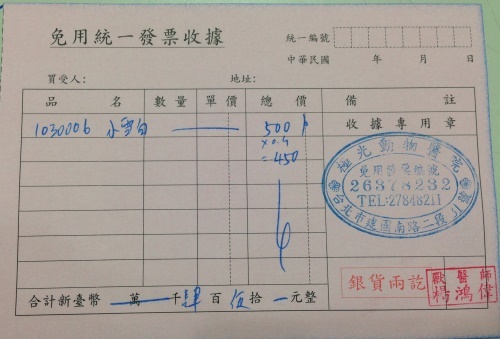 免用統一發票收據
統一編號
中華民國 年 月 日
買受人： 地址：
品名 數量 單價 總價 備註
1030006 小雪白 500
x0.9
=450
收據專用章
極光動物醫院
免用發票編號
26378232
TEL:27848211
台北市建國南路二段
銀貨兩訖
獸醫師
楊鴻偉
合計新臺幣 萬 千肆百伍拾 元整